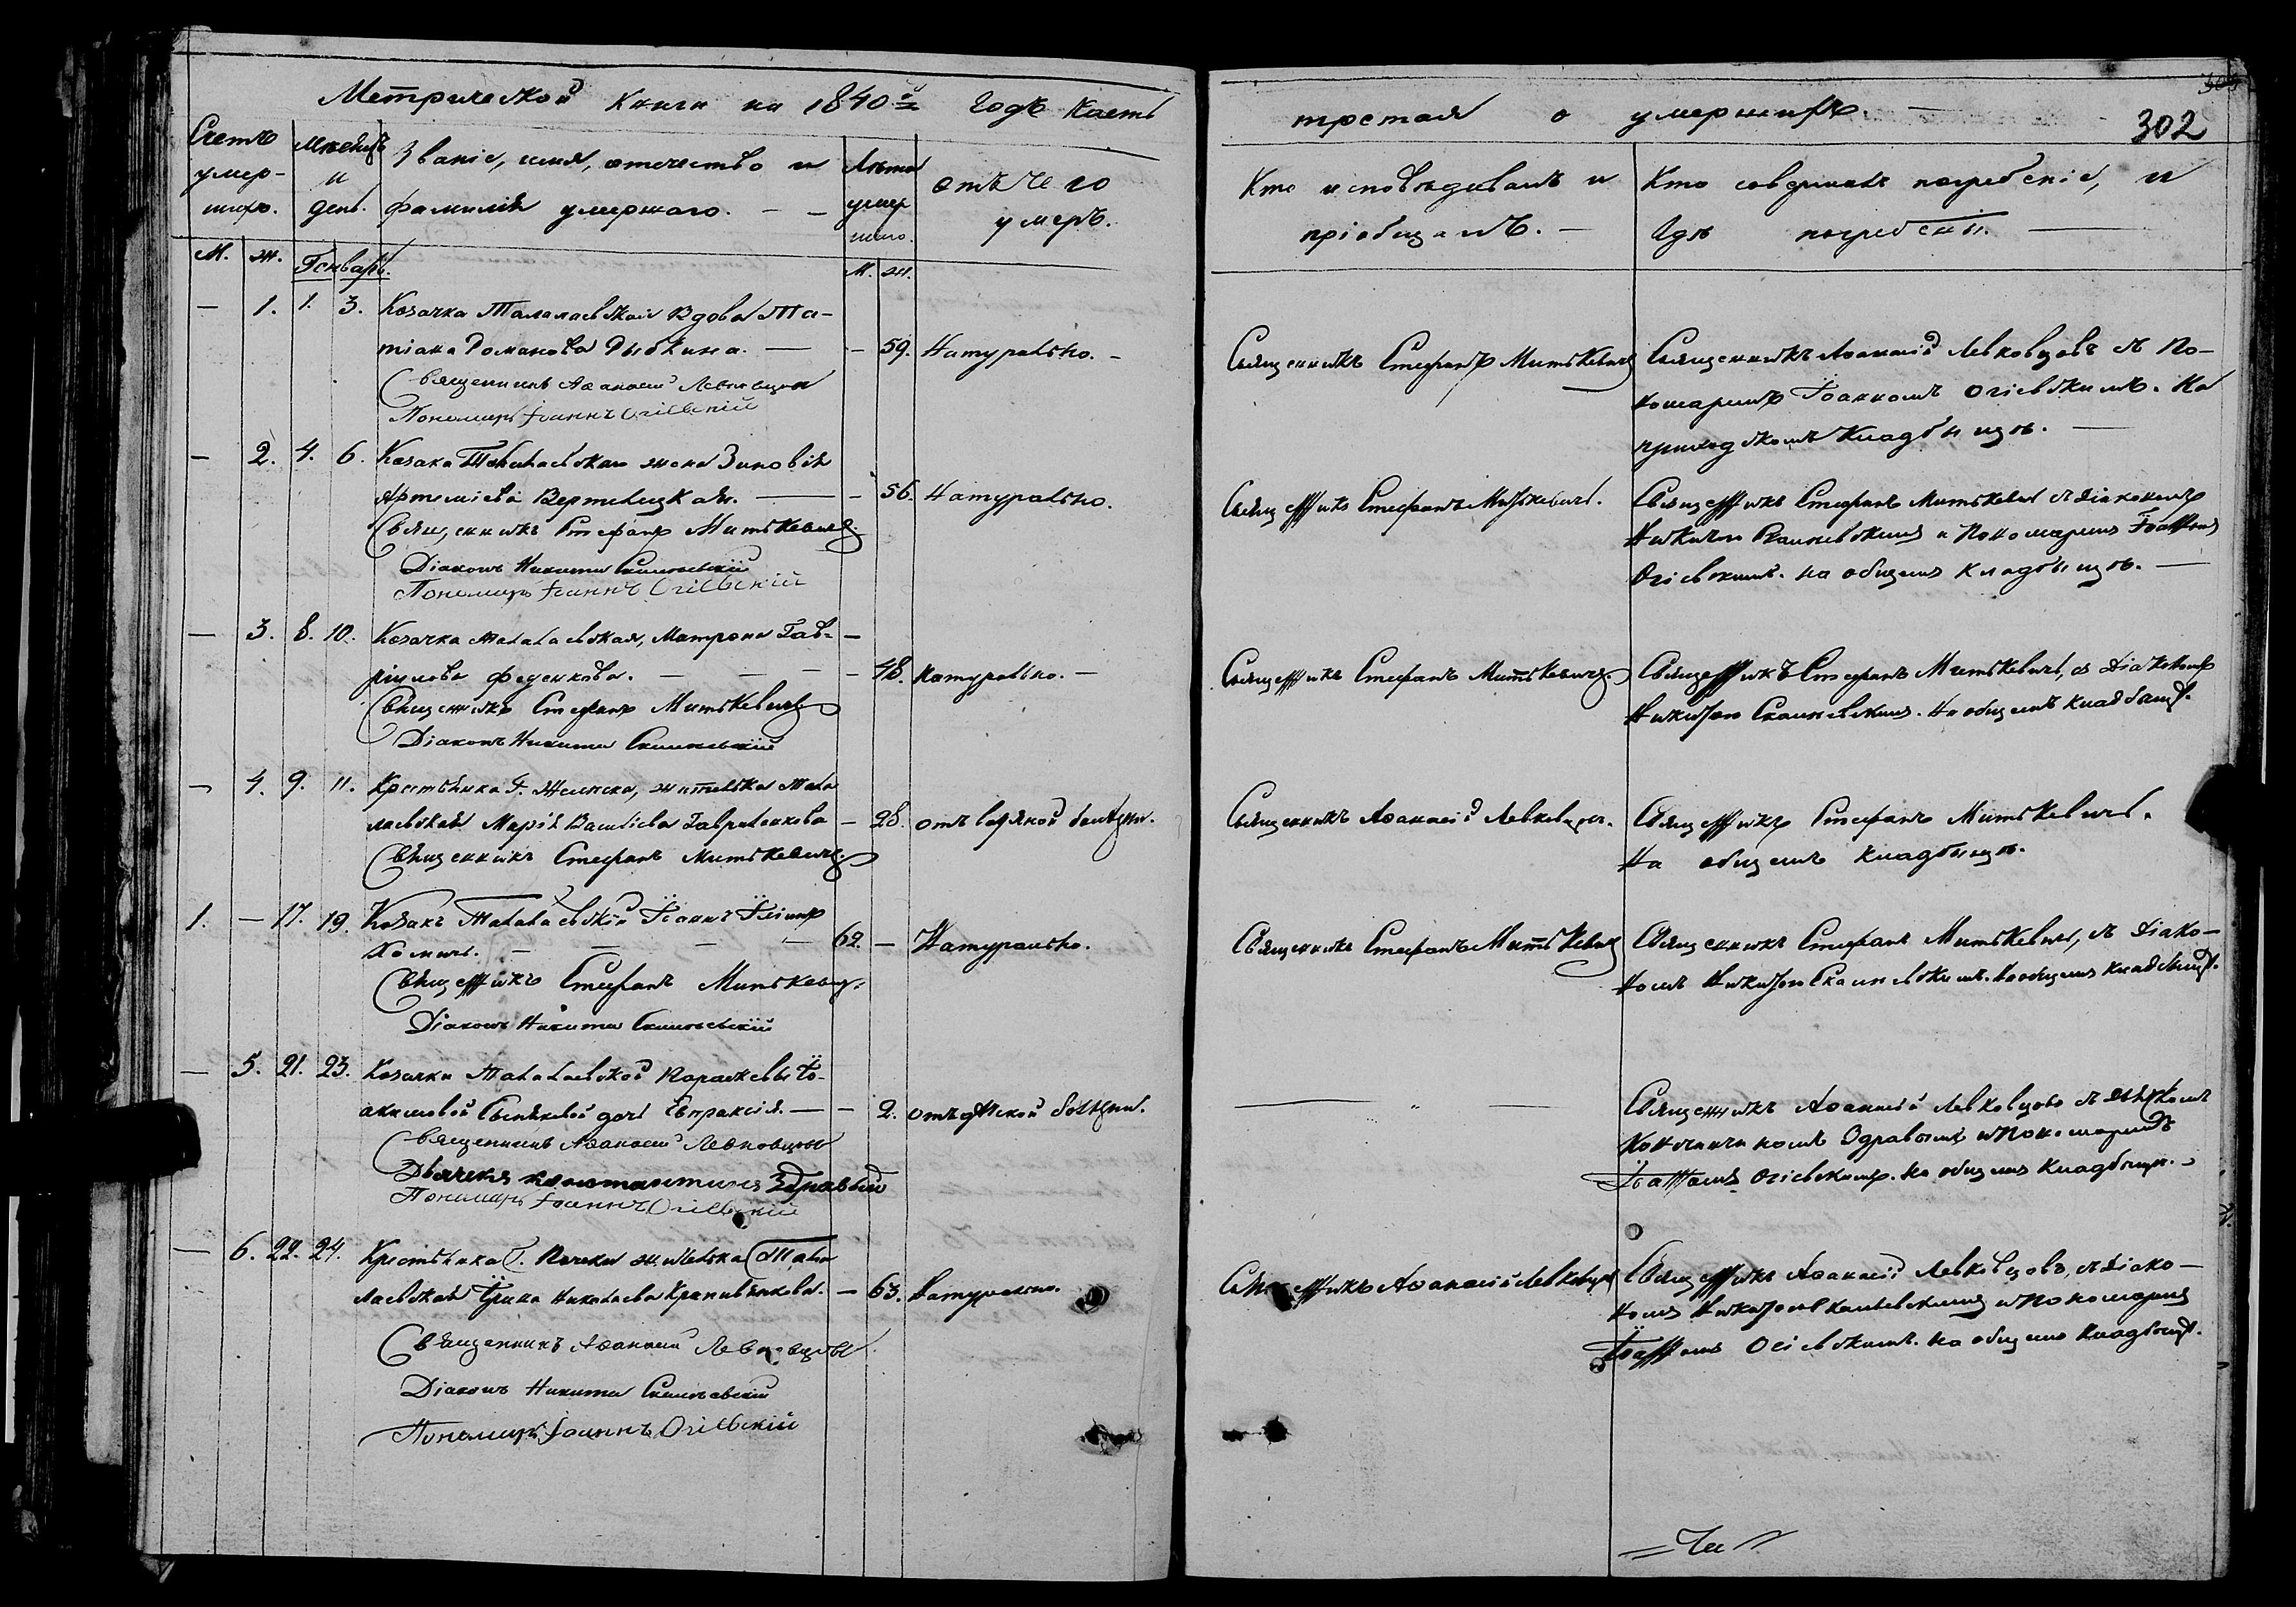 Метрической книги на 1840й годъ часть
Счетъ умер-шихъ.
Мѣсяцъ и день.
Званіе, имя, отечество и
фамилія умершаго. —
Лѣта умершаго.
отъ чего
умеръ.
М. Ж. Генварь. М. Ж.
— 1. 1. 3. Козачка Талалаевская вдова Та-
тіана Романова Рыбкина. — — 59. Натурально. —
Священникъ Аѳанасій Левковцовъ
Пономарь Іоаннъ Огіевскій
— 2. 4. 6. Козака Талалаевскаго жена Зиновія
Артеміева Вертелецкая. — — 56. Натурально.
Священникъ Стефанъ Митькевичъ
Діаконъ Никита
Пономарь Іоаннъ Огіевскій
— 3. 8. 10. Козачка Талалаевская, Матрона Гав-
рилова Феденкова. — — — 48. Натурально. —
Священникъ Стефанъ Митькевичъ
Діаконъ Никита
— 4. 9. 11. Крестьянка Г. жителька Тала
лаевская Марія Василіева Гавриленкова — 28. отъ болѣзни.
Священникъ Стефанъ Митькевичъ
1. — 17. 19. Козакъ Талалаевскій Іоаннъ
Хомичъ. — — — 62. — Натурально.
Священникъ Стефанъ Митькевичъ.
Діаконъ Никита
— 5. 21. 23. Козачки Талалаевской Параскевы Іо-
акимовой дочь Евпраксія. — — 2. отъ дѣтской болѣзни.
Священникъ Аѳанасій Левковцовъ
Дьячекъ Константинъ Здравый
Пономарь Іоаннъ Огіевскій
— 6. 22. 24. Крестьянка Г. жителька Тала
лаевская Ирина Николаева — 63. Натурально.
Священникъ Аѳанасій Левковцовъ
Діаконъ Никита
Пономарь Іоаннъ Огіевскій
третая о умершихъ. —
302
Кто исповѣдивалъ и
пріобщалъ. —
Кто совершалъ погребеніе, и
гдѣ погребены. —
Священникъ Стефанъ Митькевичъ
Священникъ Аѳанасій Левковцовъ съ По-
номаремъ Іоанномъ Огіевскимъ. На
приходскомъ кладбищѣ. —
Священникъ Стефанъ Митькевичъ.
Священникъ Стефанъ Митькевичъ съ діакономъ
Никитою и Пономаремъ Іоанномъ
Огіевскимъ. на общемъ кладбищѣ. —
Священникъ Стефанъ Митькевичъ
Священникъ Стефанъ Митькевичъ, съ Діакономъ
Никитою На общемъ кладбищѣ.
Священникъ Аѳанасій Левковцовъ.
Священникъ Стефанъ Митькевичъ.
На общемъ кладбищѣ.
Священникъ Стефанъ Митькевичъ
Священникъ Стефанъ Митькевичъ, съ Діако-
номъ Никитою На общемъ кладбищѣ.
— „ —
Священникъ Аѳанасій Левковцовъ съ дьячкомъ
Константиномъ Здравымъ и Пономаремъ
Іоанномъ Огіевскимъ. на общемъ кладбищѣ. —
Священникъ Аѳанасій Левковцовъ
Священникъ Аѳанасій Левковцовъ, съ Діако-
номъ Никитою и Пономаремъ
Іоанномъ Огіевскимъ. на общемъ кладбищѣ.